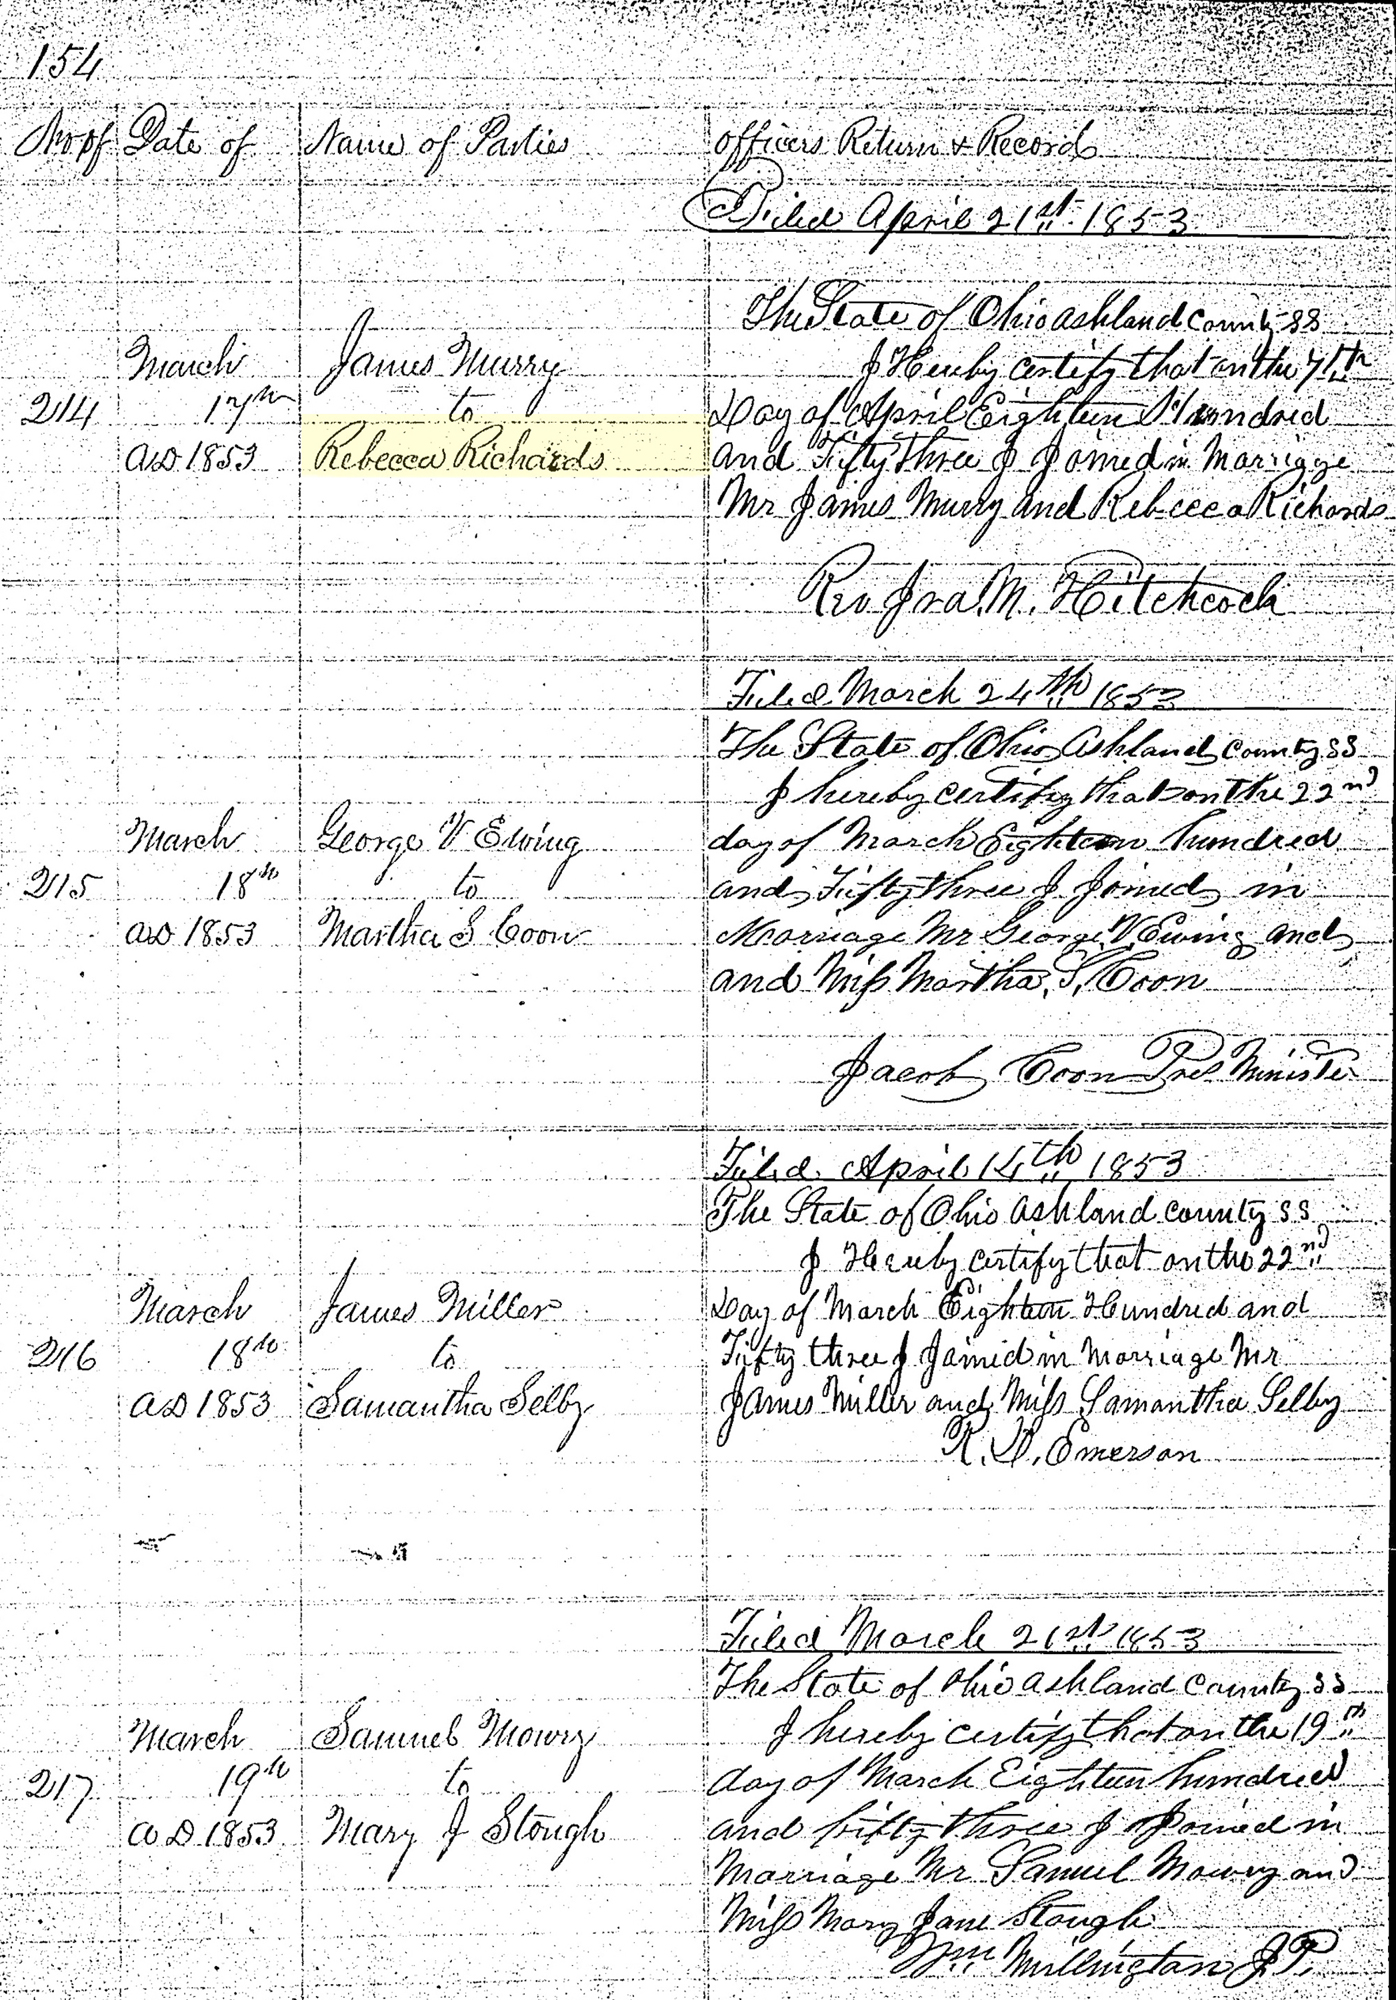 154
No of Date of Name of Parties Officers Return & Record
Filed April 21st 1853
The State of Ohio Ashland County SS
March James Murry I Hereby certify that on the 7th
214 17th to Day of April Eighteen Hundred
AD 1853 Rebecca Richards and Fifty three I Joined in Marriage
Mr James Murry and Rebecca Richards
Rev Ira. M. Hitchcock
Filed March 24th 1853
The State of Ohio Ashland County SS
I hereby certify that on the 22nd
March George V Ewing day of March Eighteen hundred
215 18th to and Fifty three I Joined in
AD 1853 Martha S Coon Marriage Mr George V. Ewing and
and Miss Martha. S. Coon
Jacob Coon Pres Minister
Filed April 14th 1853
The State of Ohio Ashland County SS
I Hereby certify that on the 22nd
March James Miller Day of March Eighteen Hundred and
216 18th to Fifty three I Joined in Marriage Mr
AD 1853 Samantha Selby James Miller and Miss Samantha Selby
Emerson
Filed March 21st 1853
The State of Ohio Ashland County SS
I hereby certify that on the 19th
March Samuel Mowry day of March Eighteen hundred
217 19th to and fifty three I Joined in
AD 1853 Mary J Stough Marriage Mr Samuel Mowry and
Miss Mary Jane Stough
Wm Millington J.P.